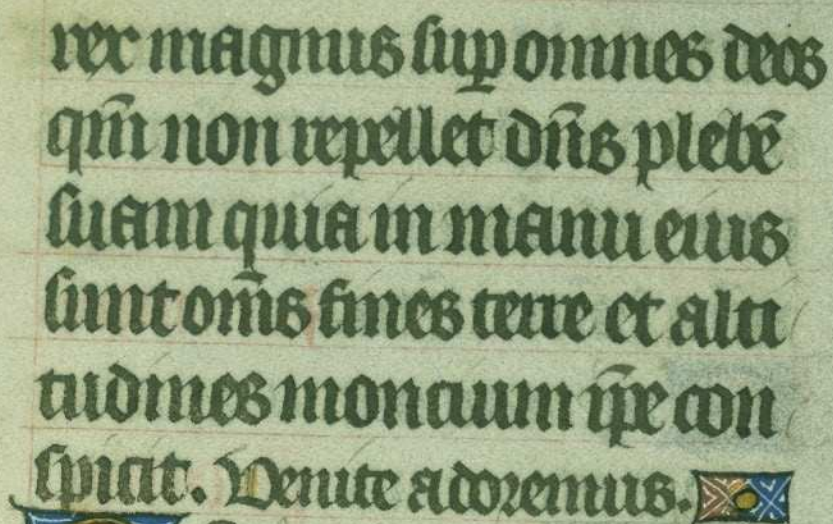 rex magnus sup omnes deos
qm̄ non repellet dn̄s plebē
suam quia in manu eius
sunt om̄s fines terre et alti
tudines moncium ip̄e con
spicit. Venite adoremus.